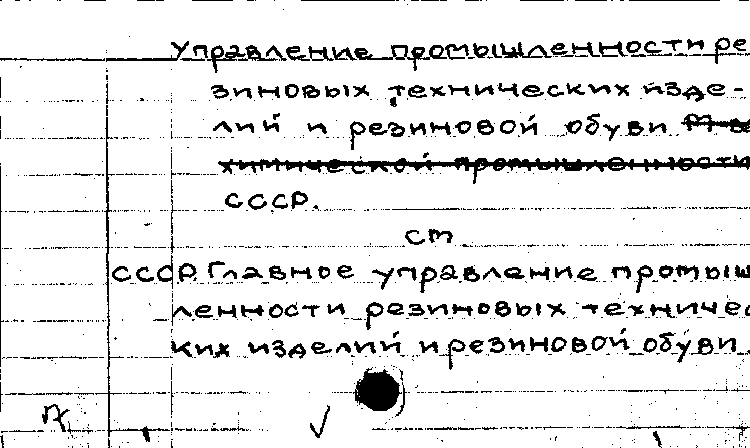 Управление промышленности ре
зиновых технических изде-
лий и резиновой обуви
химической промышленности
СССР.
см
СССР. Главное управление промыш
ленности резиновых техничес
ких изделий и резиновой обуви